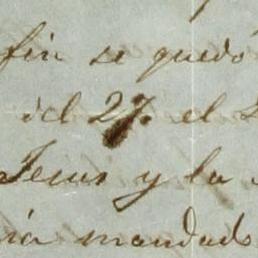 fin se quedó
del 27. el
Jesus y la
mandado